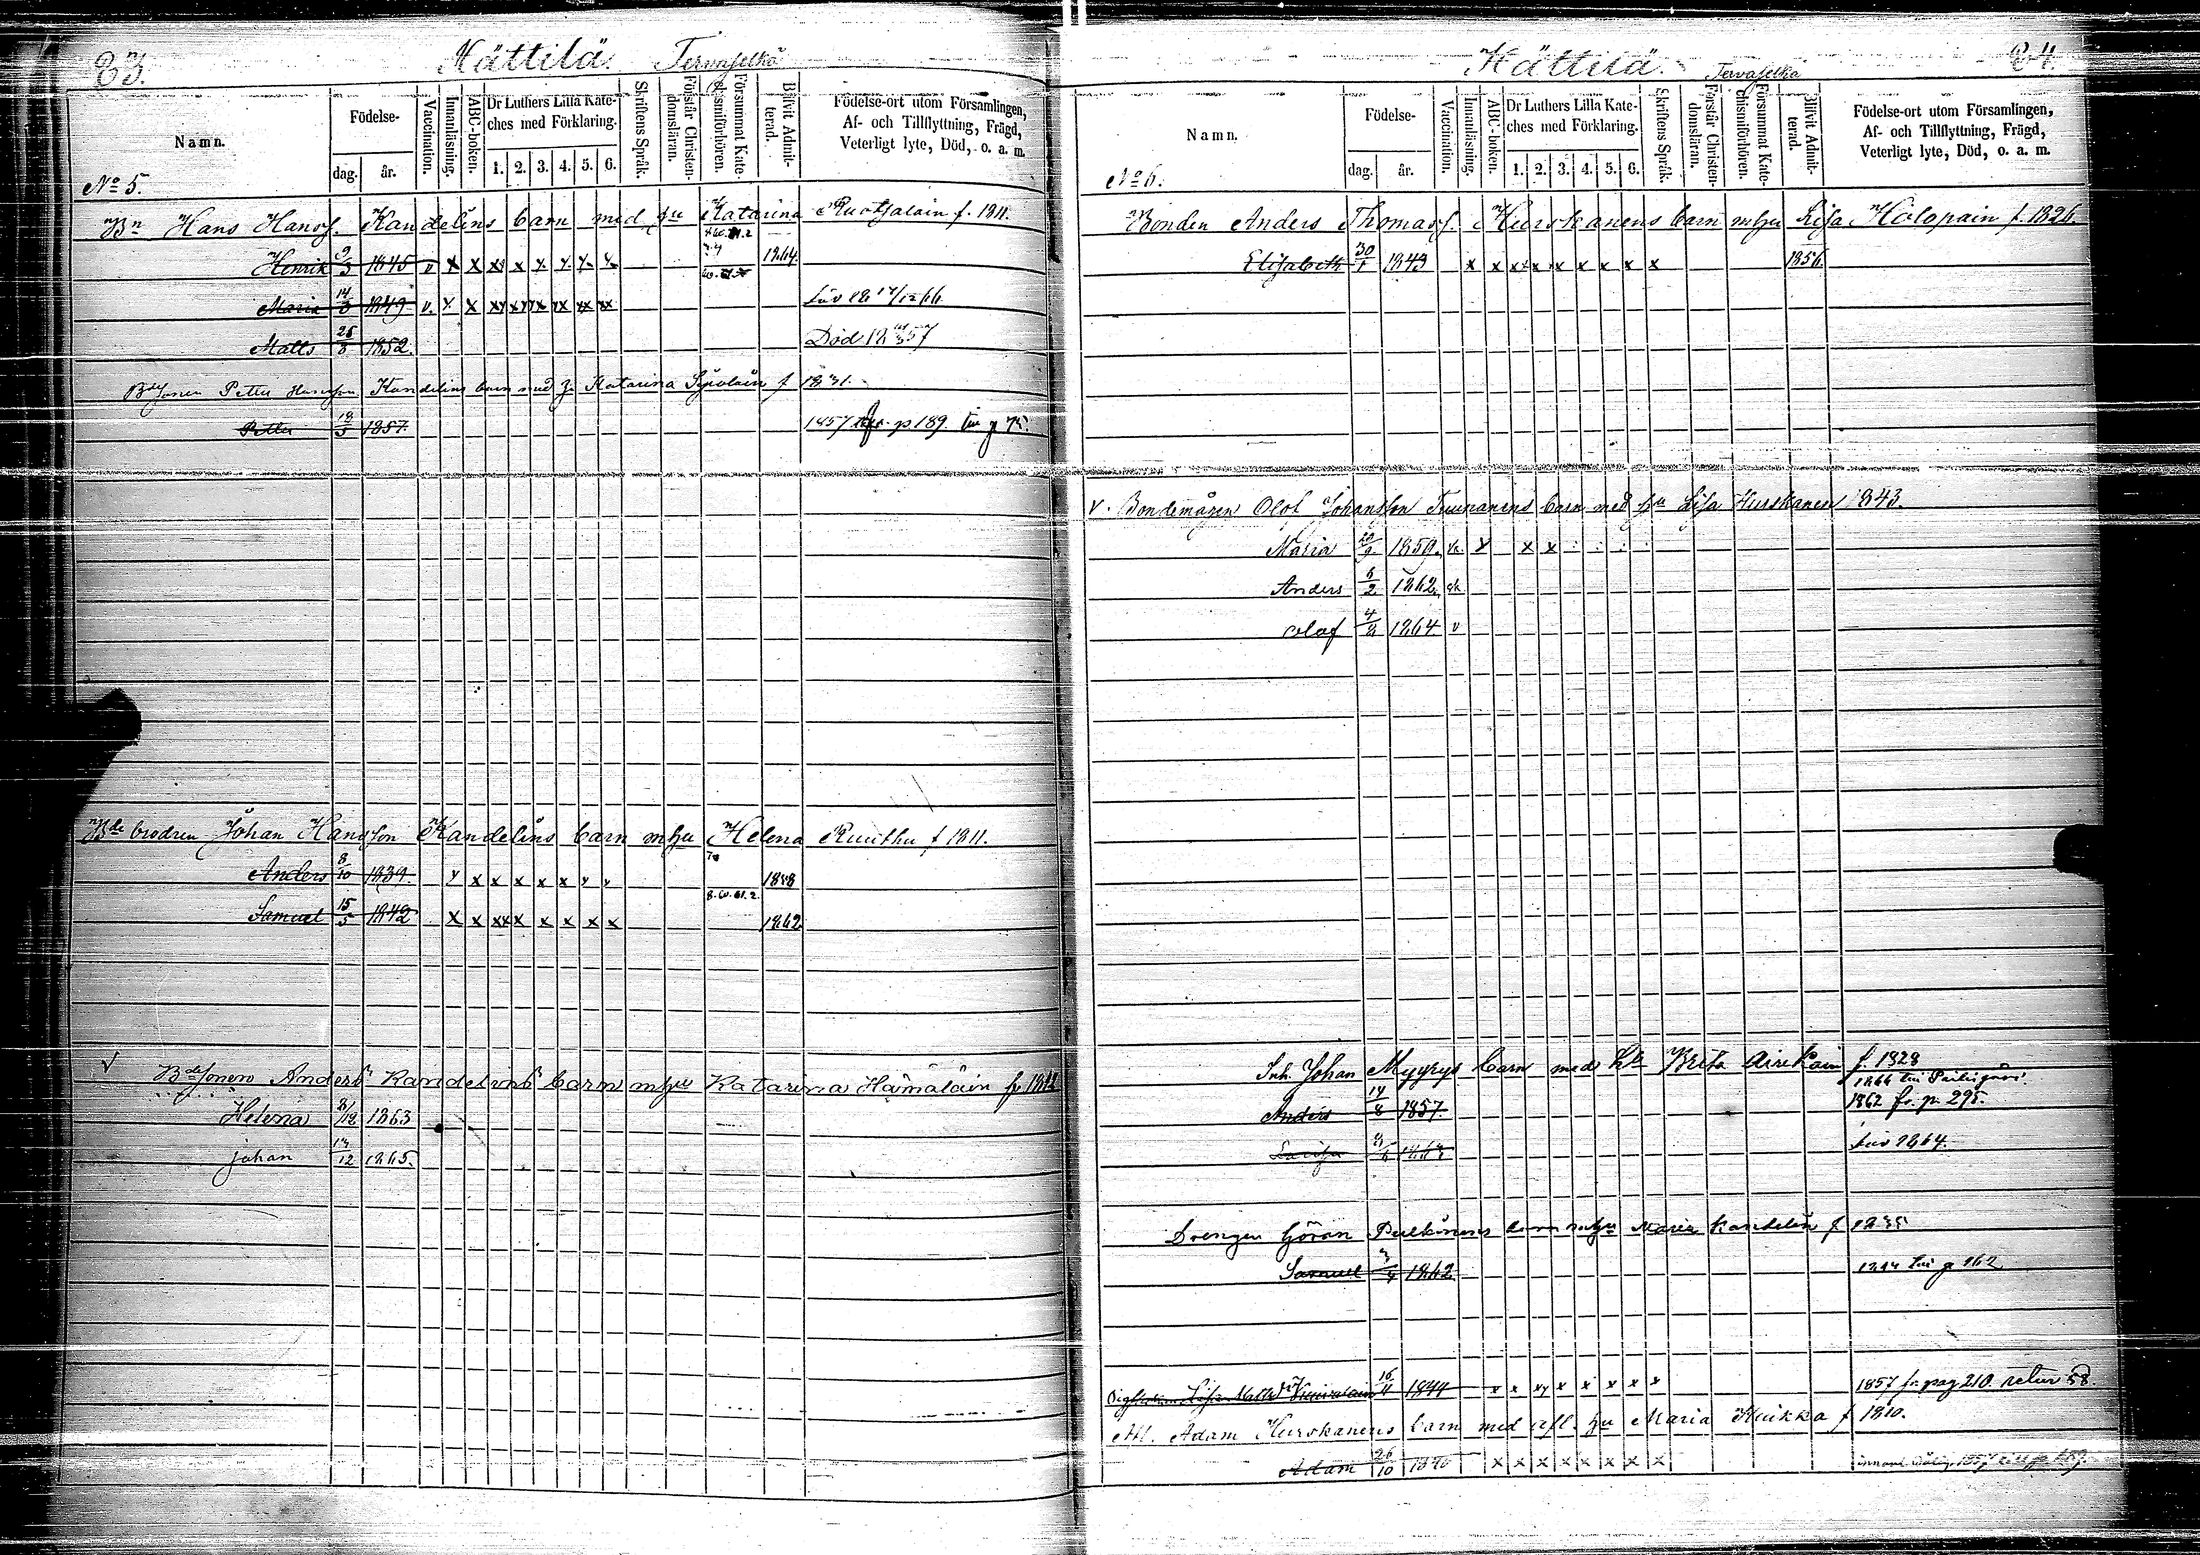 83.
Kättilä. Tervaselkä
Namn.
Födelse-
dag. år.
Vaccination.
Innanläsning.
ABC-boken.
Dr Luthers Lilla Kate-
ches med Förklaring.
1. 2. 3. 4. 5. 6.
Skriftens Språk.
Förstår Christen-
domsläran.
Försummat Kate-
chismiförhören.
Blifvit Admit-
terad.
Födelse-ort utom Församlingen,
Af- och Tillflyttning, Frägd,
Veterligt lyte, Död, o. a. m.
No 5.
Bn Hans Hanss. Kandelins barn med hu Katarina Ruotsalain f. 1811.
Henrik 9/3 1845 v x x xx x x x x x 1864
Maria 14/3 1849 v. x x
Matts 25/8 1852. Död 18 57
Bdesonen Petter Hansson Kandelins barn med h. Katarina f 1831.
Petter 18/3 1857. 1857 p 189
Bde brodren Johan Hansson Kandelins barn mhu Helena Ruuthu f 1811.
Anders 8/10 1839. x x x x x x x x 1858
8. 60. 61. 2.
Samuel 15/5 1842 x x xx x x x x x 1862
v
Bdesonen Anders Kandelins barn mhu Katarina Hämäläin f.
Helena /12 1863
Johan 13/12 1865.
84.
Kättilä. Tervaselkä
Namn.
Födelse-
dag. år.
Vaccination.
Innanläsning.
ABC-boken.
Dr Luthers Lilla Kate-
ches med Förklaring.
1. 2. 3. 4. 5. 6.
Skriftens Språk.
Förstår Christen-
domsläran.
Försummat Kate-
chismiförhören.
Blifvit Admit-
terad.
Födelse-ort utom Församlingen,
Af- och Tillflyttning, Frägd,
Veterligt lyte, Död, o. a. m.
No 6.
Bonden Anders Thomass. Hurskanens barn mhu Lisa Holopain f. 1826.
Elisabeth 30/1 1843 x x x x x x x x x 1856
v. Bondemågen Olof Johansson Tuunanens barn med hu Lisa Hurskanen 1843.
Maria 1859. x x x
Anders 6/2 1862.
Olof 4/8 1864 v
Inh. Johan Myyrys barn med h Brita Airikain f. 1828
1862 fr. p. 295.
Anders 14/8 1857.
1864.
Drengen Göran Pulkinens barn mhu Maria Kandelin f
Samuel /4 1862 p 162
Lisa Matts 16/11 1844 x x xx x x x x x 1857 fr pag 210. retur 58
Afl. Adam Hurskanens barn med afl. hu Maria Kuikka f 1810.
Adam 26/10 1840 x x x x x x x x 1857